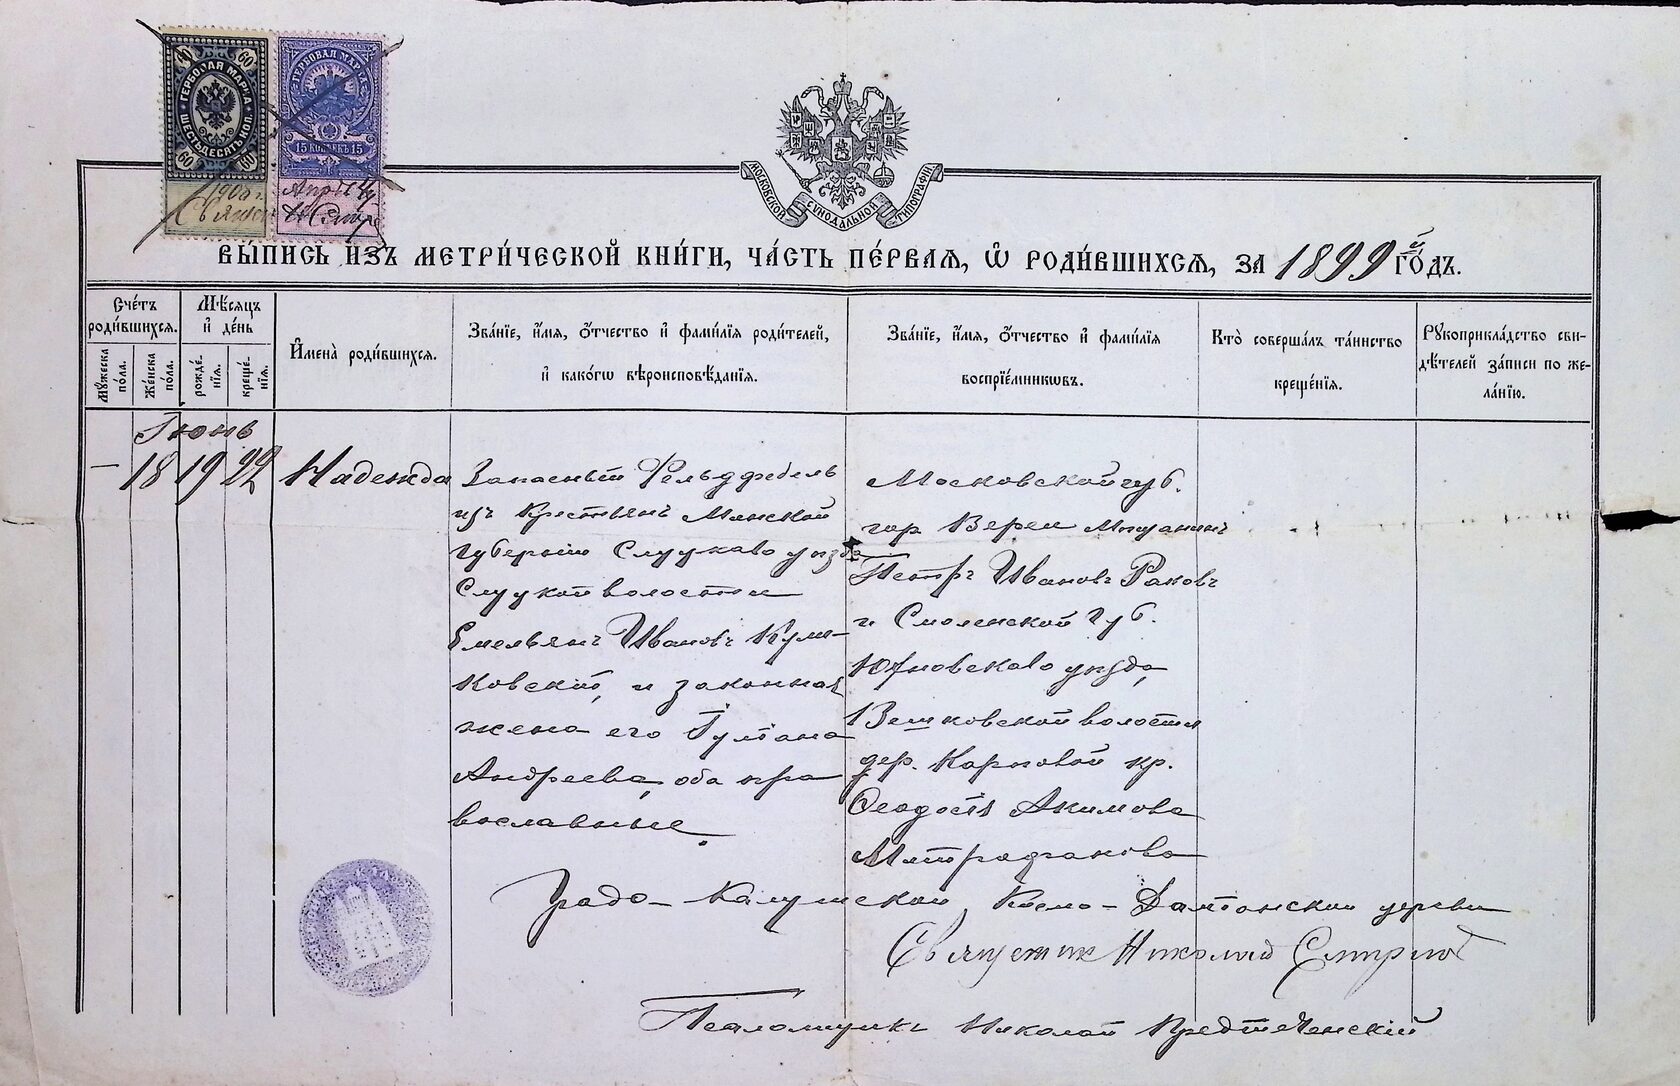 60 60
ГЕРБОВАЯ МАРКА
ШЕСТЬДЕСЯТЪ КОП.
60 60
ГЕРБОВАЯ МАРКА
15 КОПѢЕКЪ 15
1900 г.
Свящ
Апр
Н Смир
МОСКОВСКОЙ СѴНОДАЛЬНОЙ ТИПОГРАФІИ.
ВЫ́ПИСЬ ИЗЪ МЕТРИ́ЧЕСКОЙ КНИ́ГИ, ЧА́СТЬ ПЕ́РВАЯ, Ѽ РОДИ́ВШИХСЯ, ЗА 1899й ГО́ДЪ.
Сче́тъ роди́вшихся.
Мꙋ́жеска по́ла.
Же́нска по́ла.
Мѣ́сяцъ и҆ де́нь
рожде́нїя.
креще́нїя.
И҆мена̀ роди́вшихся.
Зва́нїе, и҆́мя, ѻ҆́тчество и҆ фами́лїя роди́телей,
и҆ како́гѡ вѣроисповѣ́данїя.
Зва́нїе, и҆́мя, ѻ҆́тчество и҆ фами́лїя
воспрїе́мникѡвъ.
Кто̀ соверша́лъ та́инство
креще́нїя.
Рꙋкоприкла́дство сви-
дѣ́телей за́писи по же-
ла́нїю.
Іюнь
— 18 19 22 Надежда
Запасный Фельдфебель
изъ Крестьянъ Минской
губерніи Слуцкаго уѣзда
Слуцкой волости
Емельянъ Ивановъ Куль-
ковскій, и законная
жена его Іуліана
Андреева, оба пра
вославные.
Московской губ.
гор. Вереи мѣщанинъ
Петръ Ивановъ Раковъ
и Смоленской губ.
Юхновскаго уѣзда,
Вешковской волости
дер. Карповой кр.
Ѳеодосія Акимова
Митрофанова
Градо-Калужской Косьмо-Даміанской церкви
Священникъ Николай Смирнов
Псаломщикъ Николай Предтеченскій